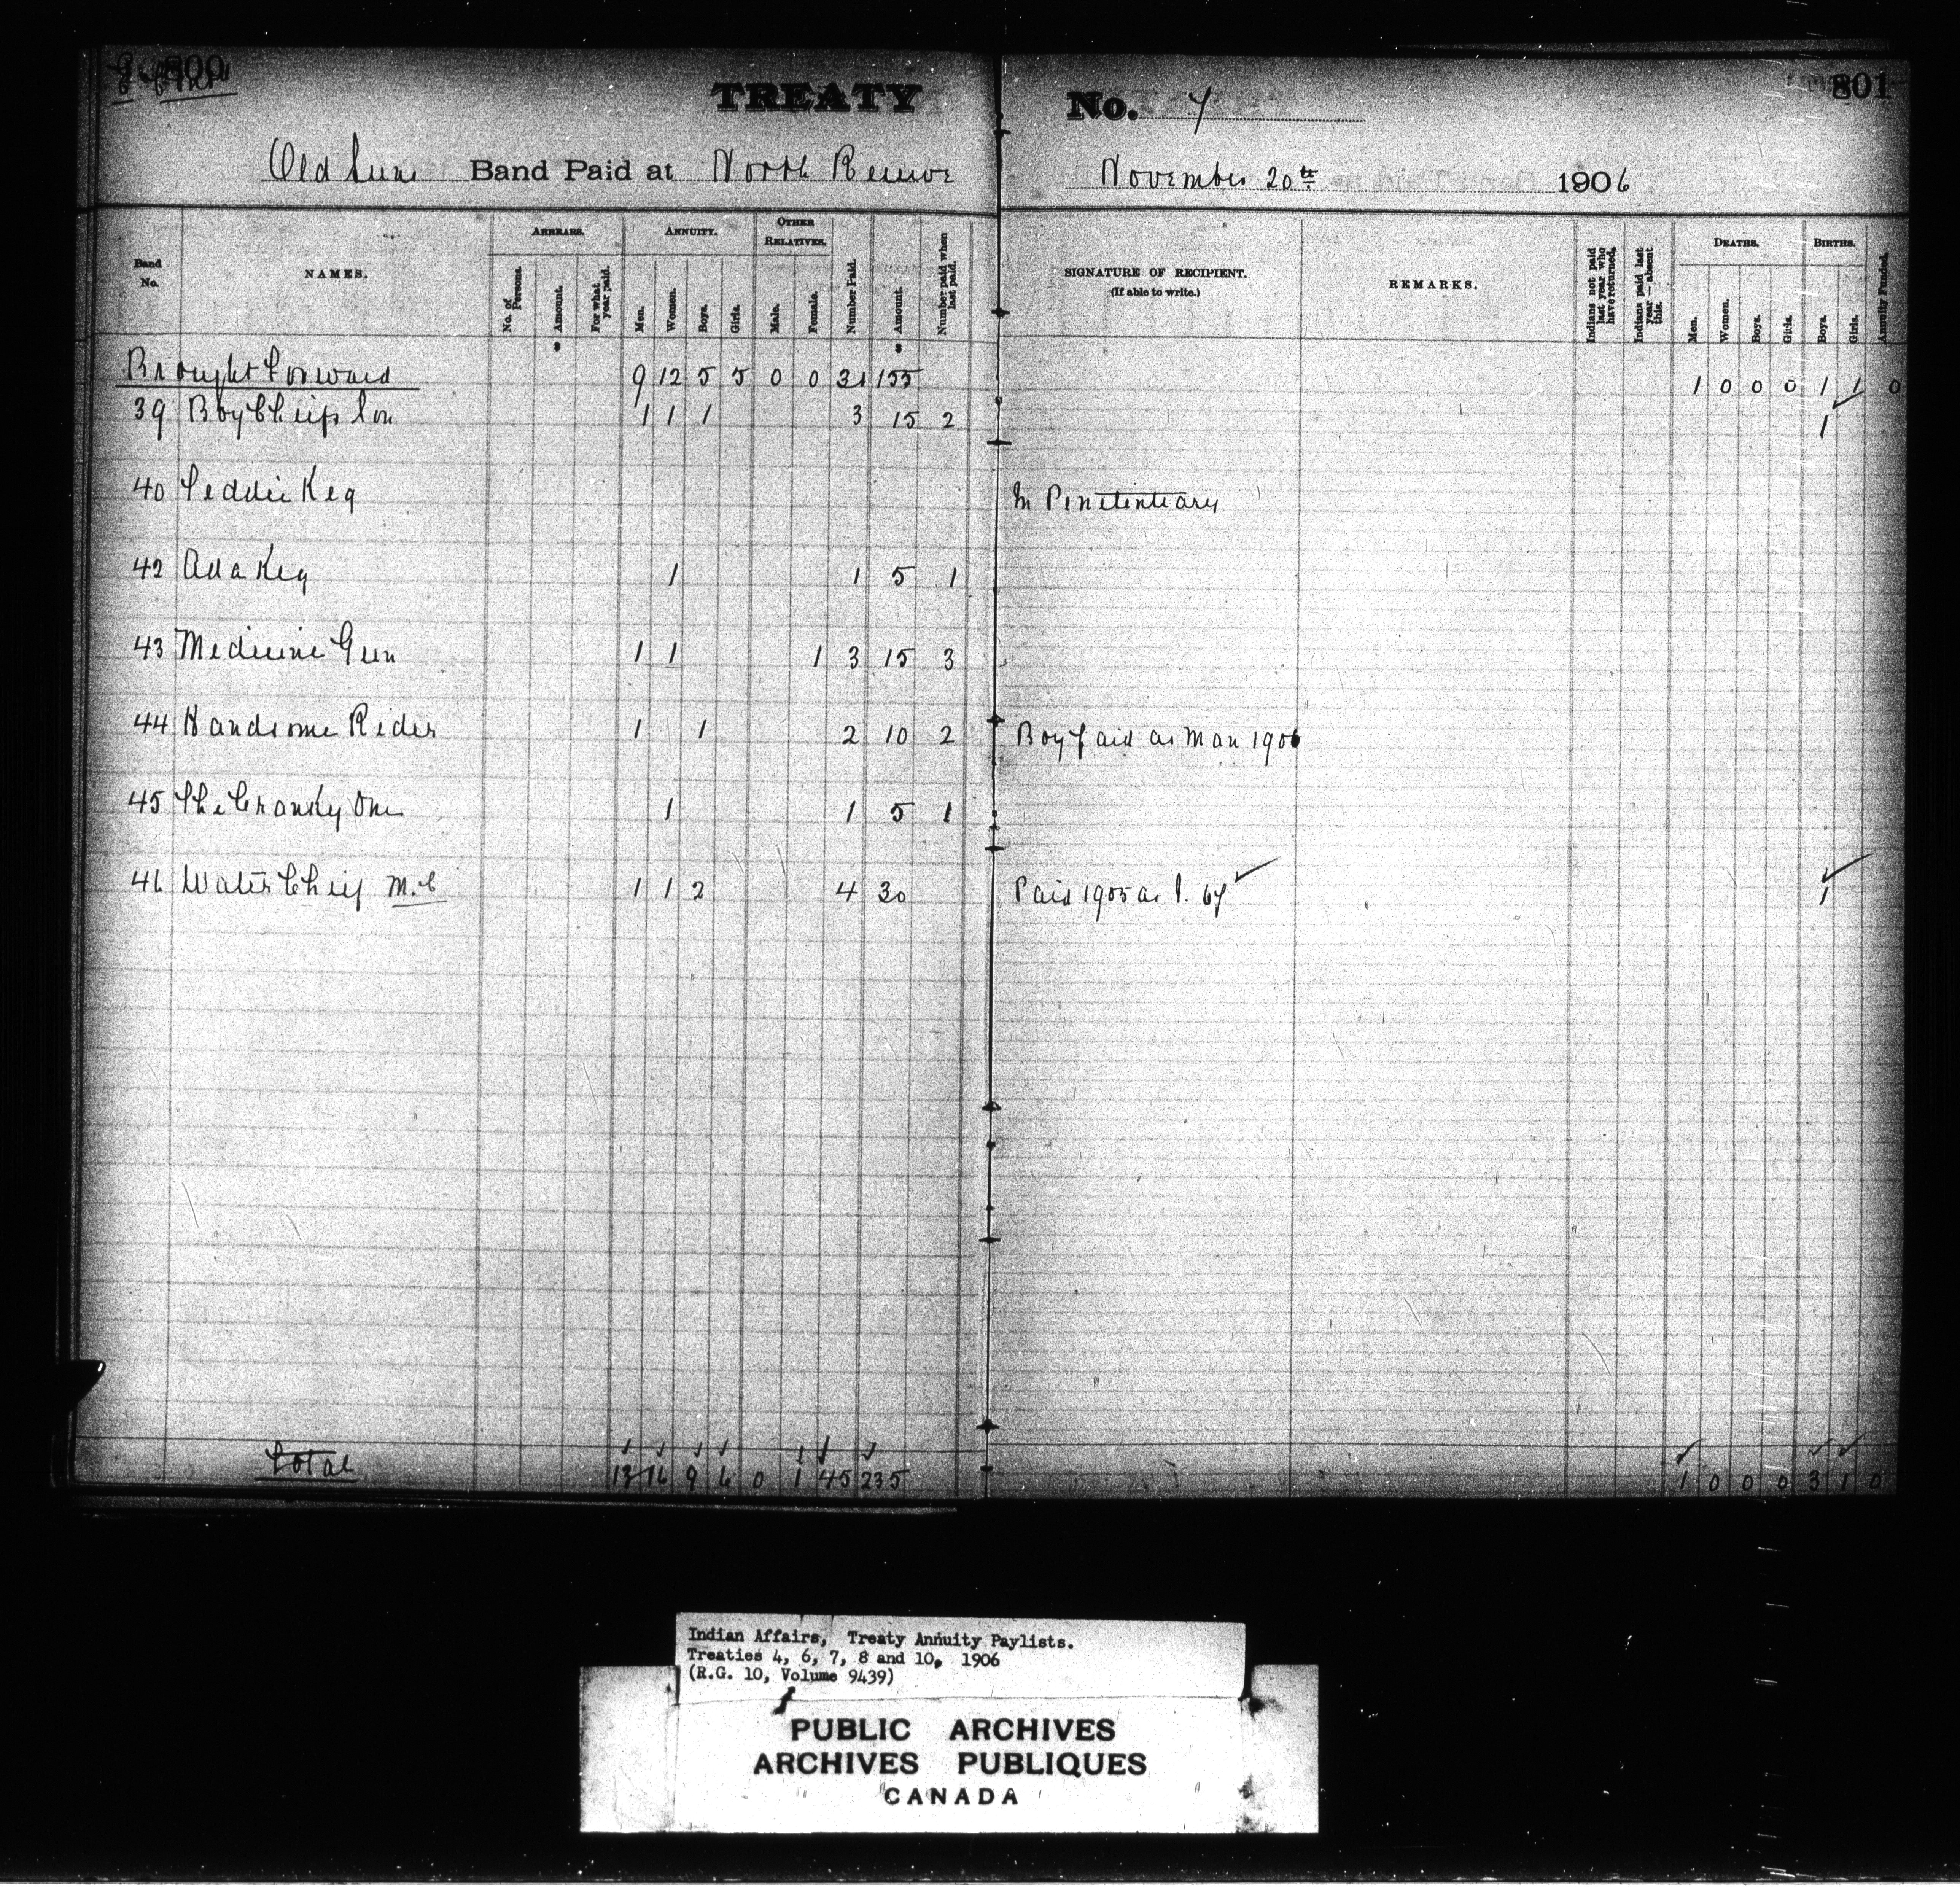 800
801
TREATY No. 7
Old Suns Band Paid at North Reserve November 20th 1906
Band No.
NAMES.
ARREARS.
No. of Persons.
Amount.
For what year paid.
ANNUITY.
Men.
Women.
Boys.
Girls.
OTHER RELATIVES.
Male.
Female.
Number Paid.
Amount.
Number paid when last paid.
SIGNATURE OF RECIPIENT.
(If able to write.)
REMARKS.
Indians not paid last year who have returned.
Indians paid last year—absent this.
DEATHS.
Men.
Women.
Boys.
Girls.
BIRTHS.
Boys.
Girls.
Annuity Funded.
Brought Forward 9 12 5 5 0 0 31 155 1 0 0 0 1 1 0
39 Boy Chiefs Son 1 1 1 3 15 2 1
40 Teddie Keg In Penitentiary
42 Ada Keg 1 1 5 1
43 Medicine Gun 1 1 1 3 15 3
44 Handsome Rider 1 1 2 10 2 Boy paid as Man 1906
45 The Cranky One 1 1 5 1
46 Water Chief M.C 1 1 2 4 30 Paid 1905 as 67 1
Total 13 16 9 6 0 1 45 235 1 0 0 0 3 1 0
Indian Affairs, Treaty Annuity Paylists.
Treaties 4, 6, 7, 8 and 10, 1906
(R.G. 10, Volume 9439)
PUBLIC ARCHIVES
ARCHIVES PUBLIQUES
CANADA